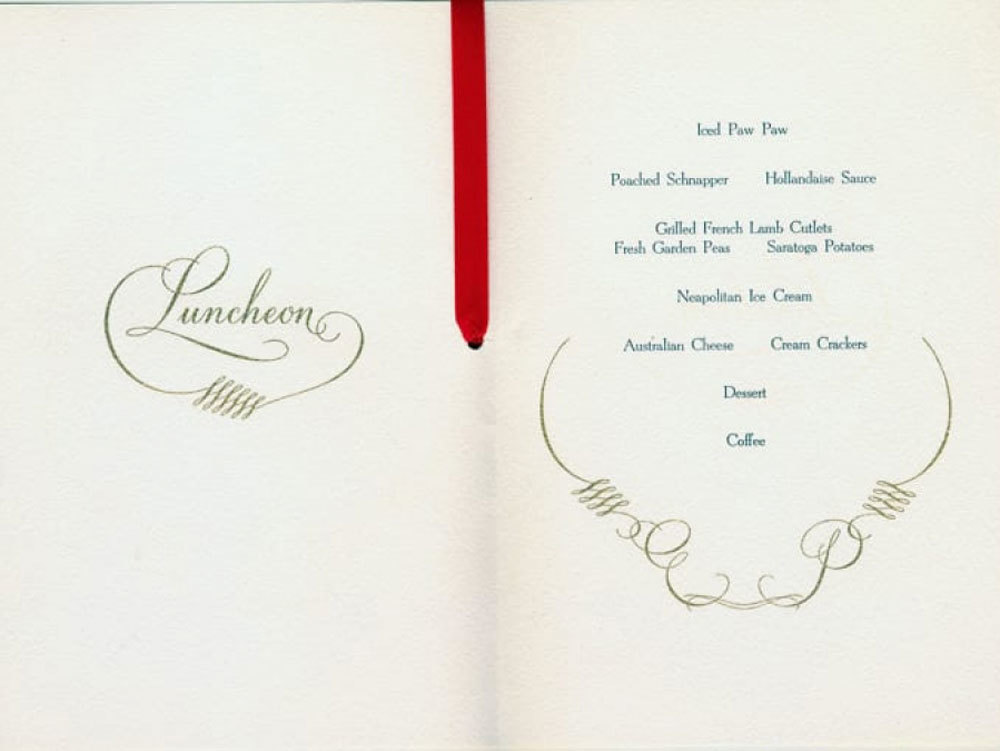 Luncheon
Iced Paw Paw
Poached Schnapper Hollandaise Sauce
Grilled French Lamb Cutlets
Fresh Garden Peas Saratoga Potatoes
Neapolitan Ice Cream
Australian Cheese Cream Crackers
Dessert
Coffee